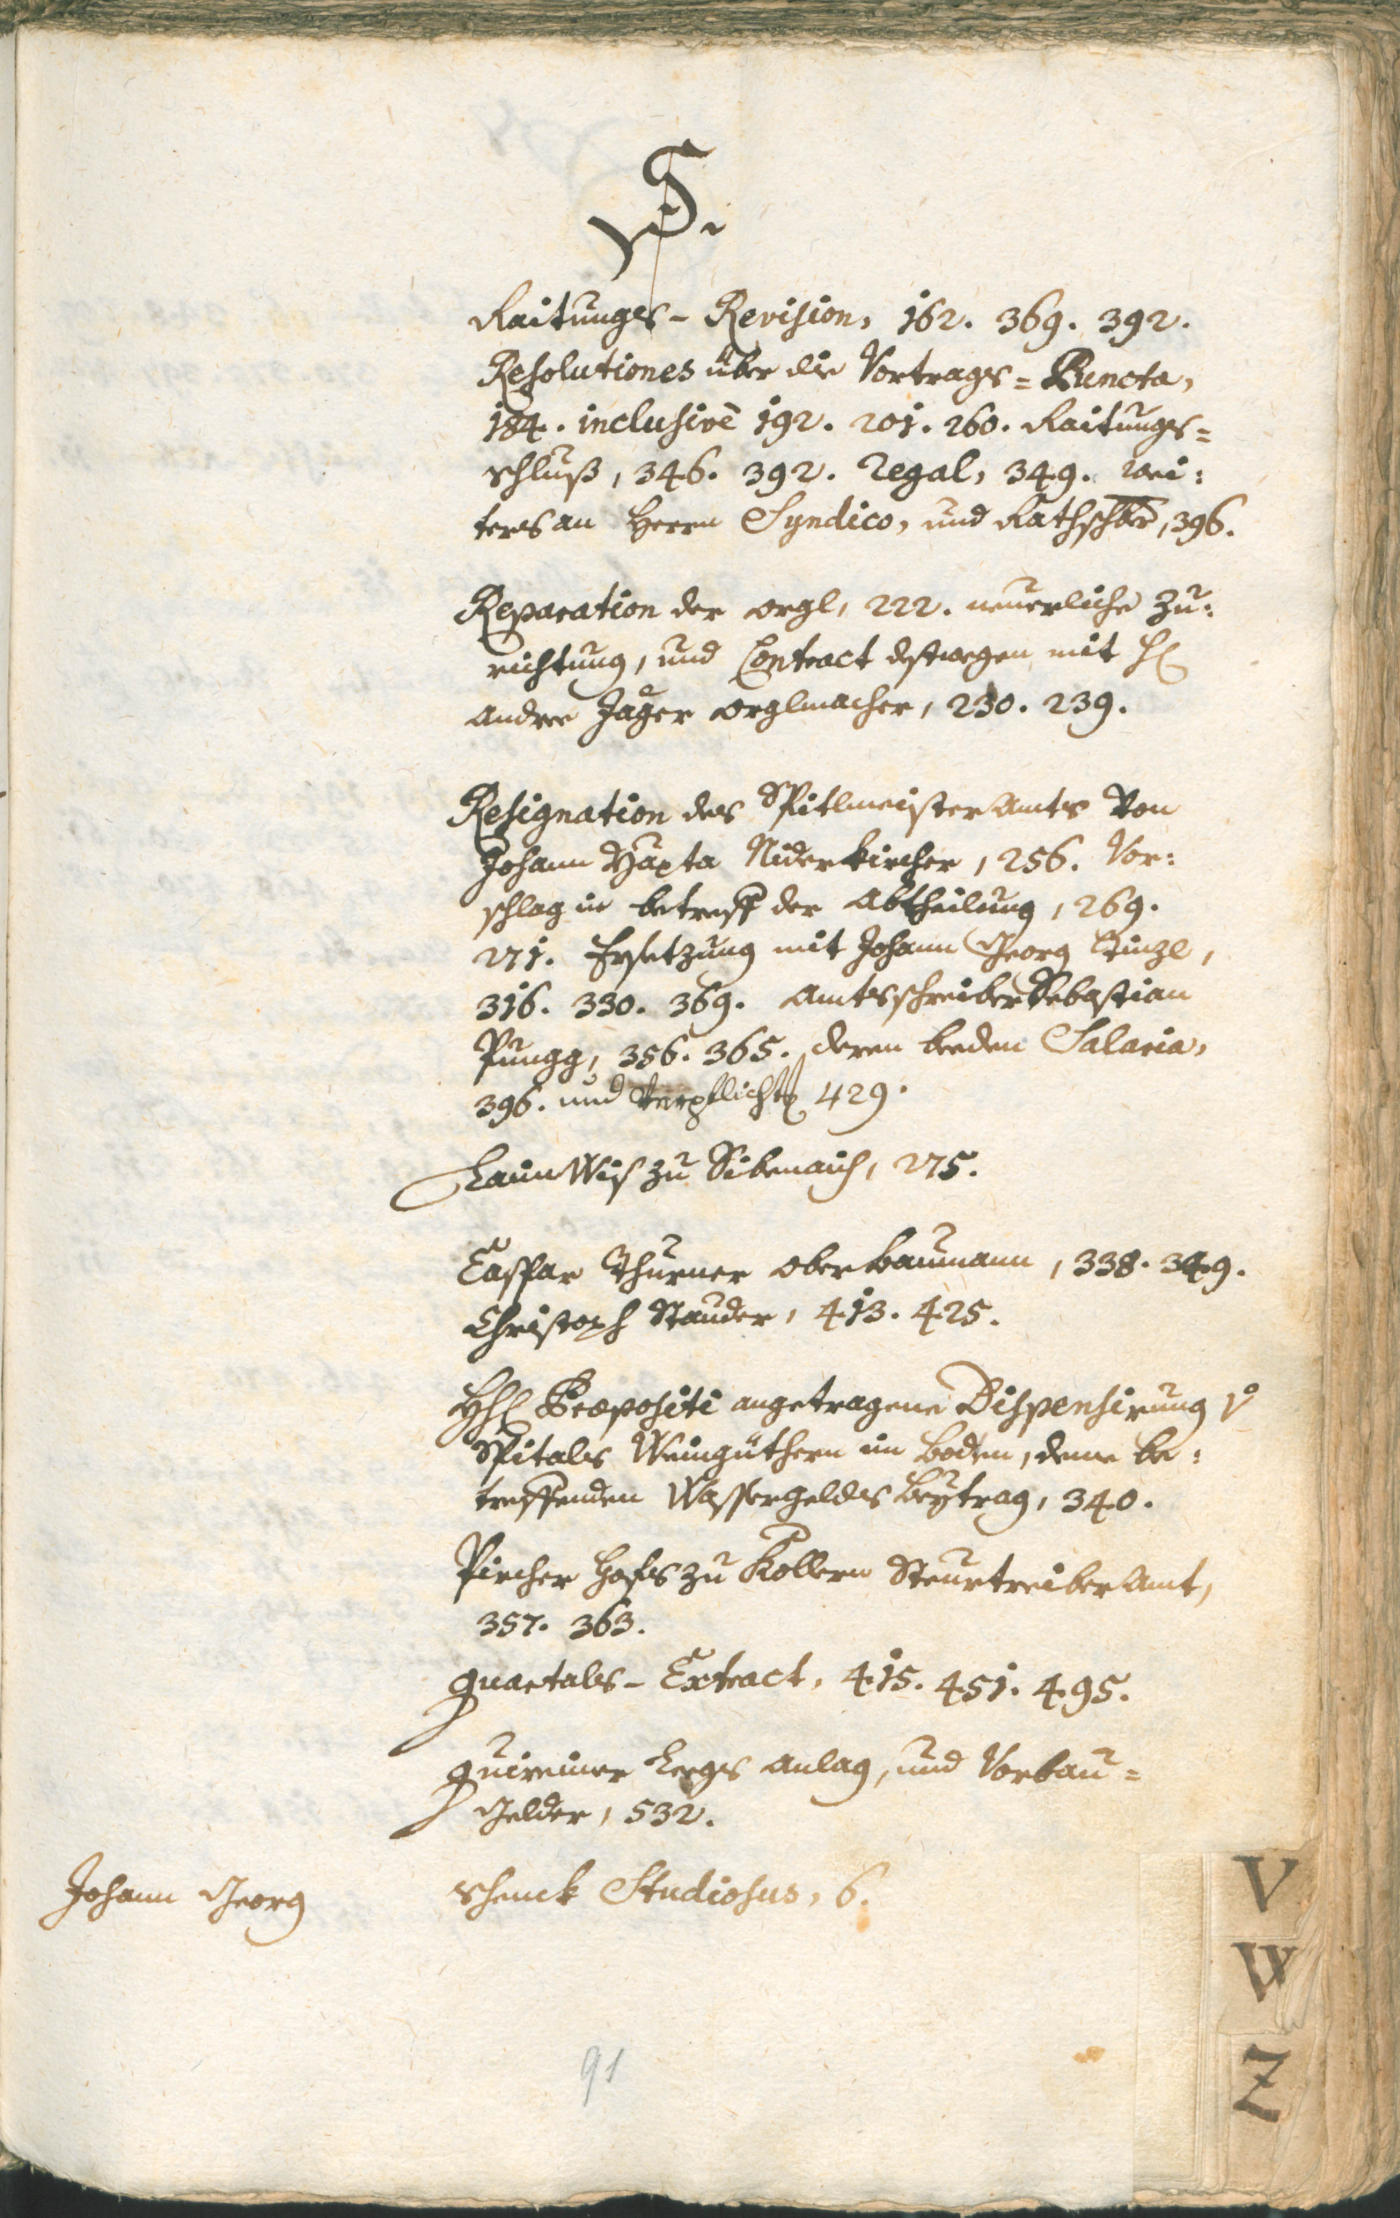 S.
Raitungs- Revision, 162. 369. 392.
Resolutiones über die Vortrags= Puncta,
184. inclusivè 192. 201. 260. Raitungs=
schluß, 346. 392. Regal, 349. wei:
ters an Herrn Syndico, und Rathschbr, 396.
Reparation der orgl, 222. neuerliche Zu:
richtung, und Contract destwegen mit H
Andree Jäger Orglmacher, 230. 239.
Resignation des Spitlmeister Amts Von
Johann Bapta Niderkircher, 256. Vor:
schlag in betreff der Abtheilung, 269.
271. Ersetzung mit Johann Georg Kinzl,
316. 330. 369. Amtsschreiber Sebastian
Pungg, 356. 365. deren beeden Salaria,
396. und Verpflicht 429.
Raun Wis zu Sibenaich, 275.
Caspar Thurner oberbaumann, 338. 349.
Christoph Stauder, 413. 425.
Præpositi angetragene Dispensirung
Spitals Weingüthern im Boden, denen be:
treffenden Wassergelds Beytrag, 340.
Pircher Hofs zu Kollern Steurtreiber Amt,
357. 363.
quartals- Extract, 415. 451. 495.
quireiner Leegs Anlag, und Vorbau=
Gelder, 532.
Johann Georg schenck Studiosus, 6.
91
V
W
Z